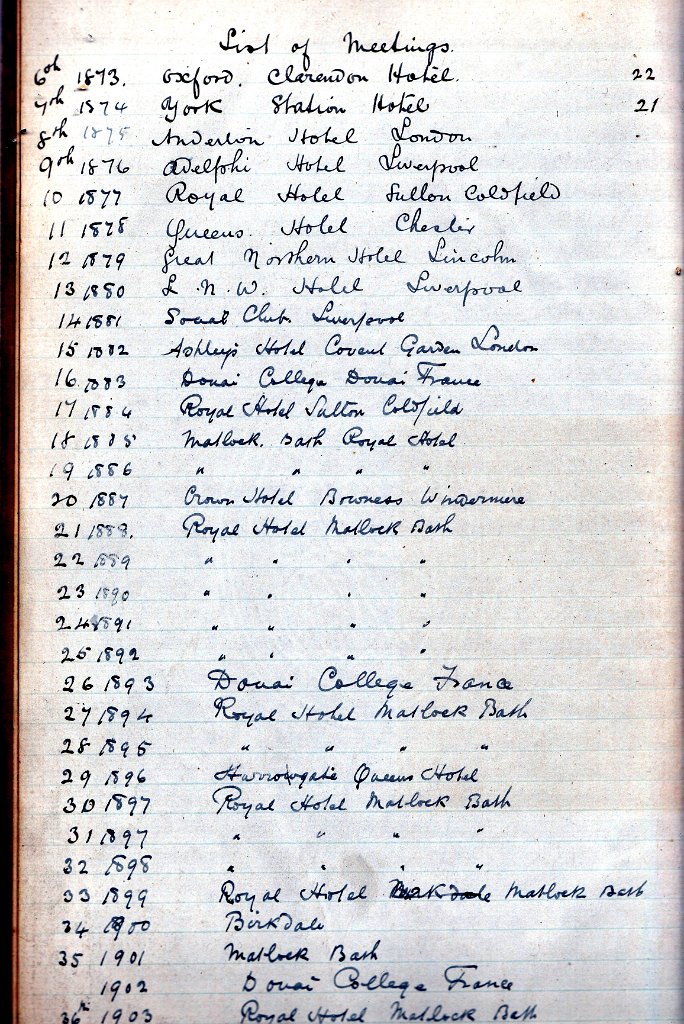 List of Meetings.
6th 1873. Oxford. Clarendon Hotel. 22
7th 1874 York Station Hotel 21
8th 1875 Anderton Hotel London
9th 1876 Adelphi Hotel Liverpool
10 1877 Royal Hotel Sutton Coldfield
11 1878 Queens Hotel Chester
12 1879 Great Northern Hotel Lincoln
13 1880 L. N. W. Hotel Liverpool
14 1881 Social Club Liverpool
15 1882 Ashley's Hotel Covent Garden London
16 1883 Douai College Douai France
17 1884 Royal Hotel Sutton Coldfield
18 1885 Matlock. Bath Royal Hotel
19 1886 " " " "
20 1887 Crown Hotel Bowness Windermere
21 1888. Royal Hotel Matlock Bath
22 1889 " " " "
23 1890 " " " "
24 1891 " " " "
25 1892 " " " "
26 1893 Douai College France
27 1894 Royal Hotel Matlock Bath
28 1895 " " " "
29 1896 Harrowgate Queens Hotel
30 1897 Royal Hotel Matlock Bath
31 1897 " " " "
32 1898 " " " "
33 1899 Royal Hotel Matlock Bath
34 1900 Birkdale
35 1901 Matlock Bath
1902 Douai College France
36th 1903 Royal Hotel Matlock Bath